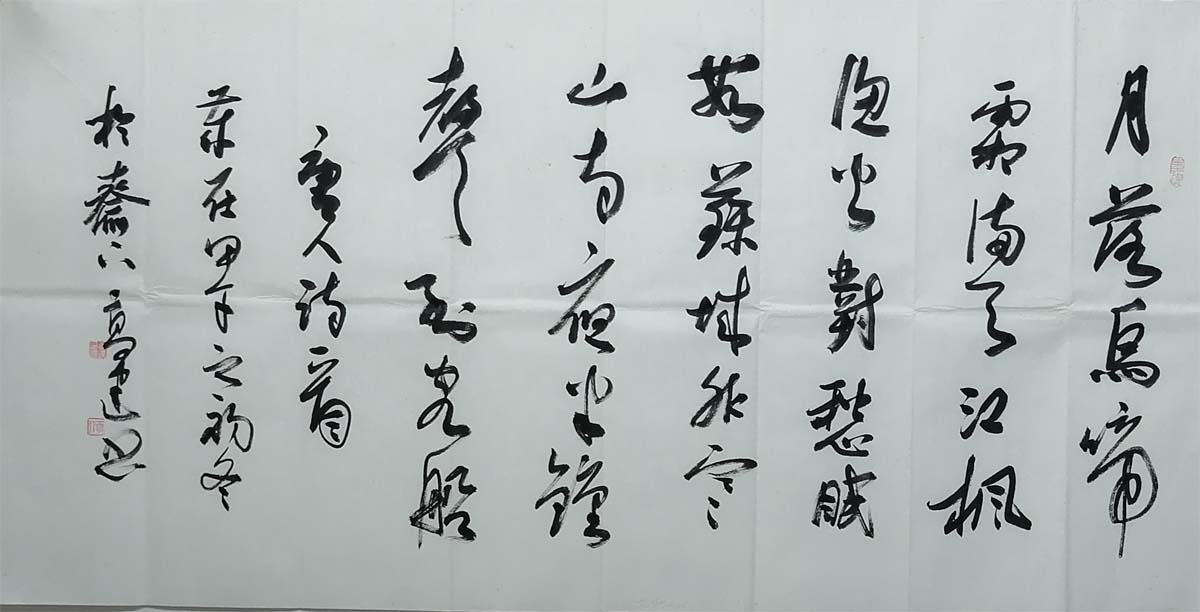 月落烏啼
霜滿天江楓
漁火對愁眠
姑蘇城外寒
山寺夜半鐘
聲到客船
唐人詩一首
歲在甲午之初冬
於